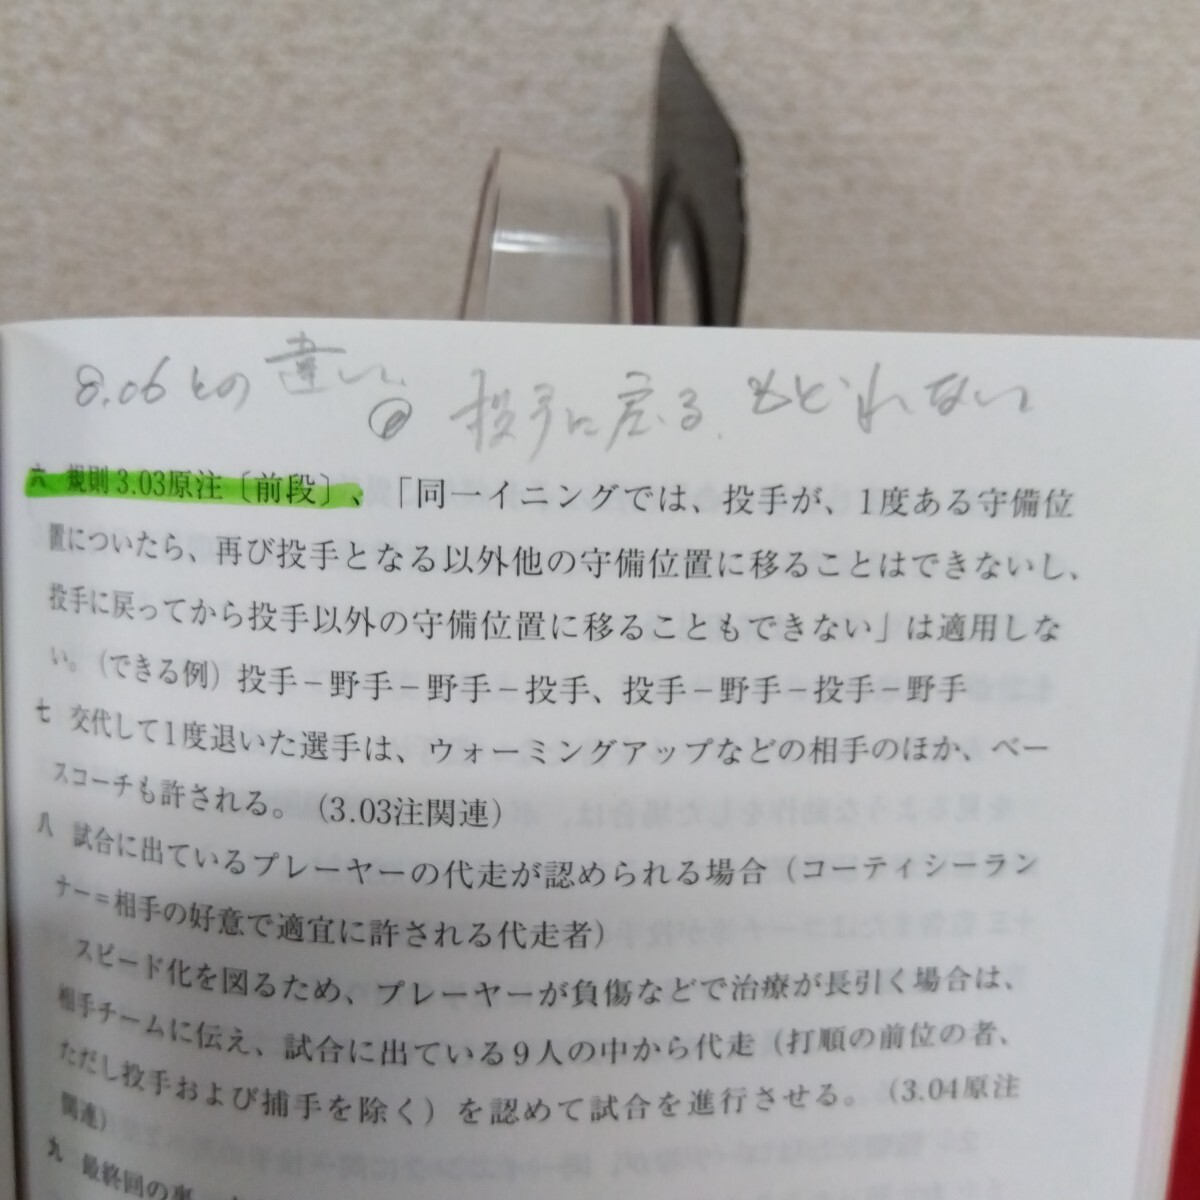 8.06との違い 投手に戻る、もどれない
六 規則3.03原注〔前段〕、「同一イニングでは、投手が、1度ある守備位
置についたら、再び投手となる以外他の守備位置に移ることはできないし、
投手に戻ってから投手以外の守備位置に移ることもできない」は適用しな
い。(できる例)投手－野手－野手－投手、投手－野手－投手－野手
七 交代して1度退いた選手は、ウォーミングアップなどの相手のほか、ベー
スコーチも許される。(3.03注関連)
八 試合に出ているプレーヤーの代走が認められる場合(コーティシーラン
ナー＝相手の好意で適宜に許される代走者)
スピード化を図るため、プレーヤーが負傷などで治療が長引く場合は、
相手チームに伝え、試合に出ている9人の中から代走(打順の前位の者、
ただし投手および捕手を除く)を認めて試合を進行させる。(3.04原注
関連)
九 最終回の裏